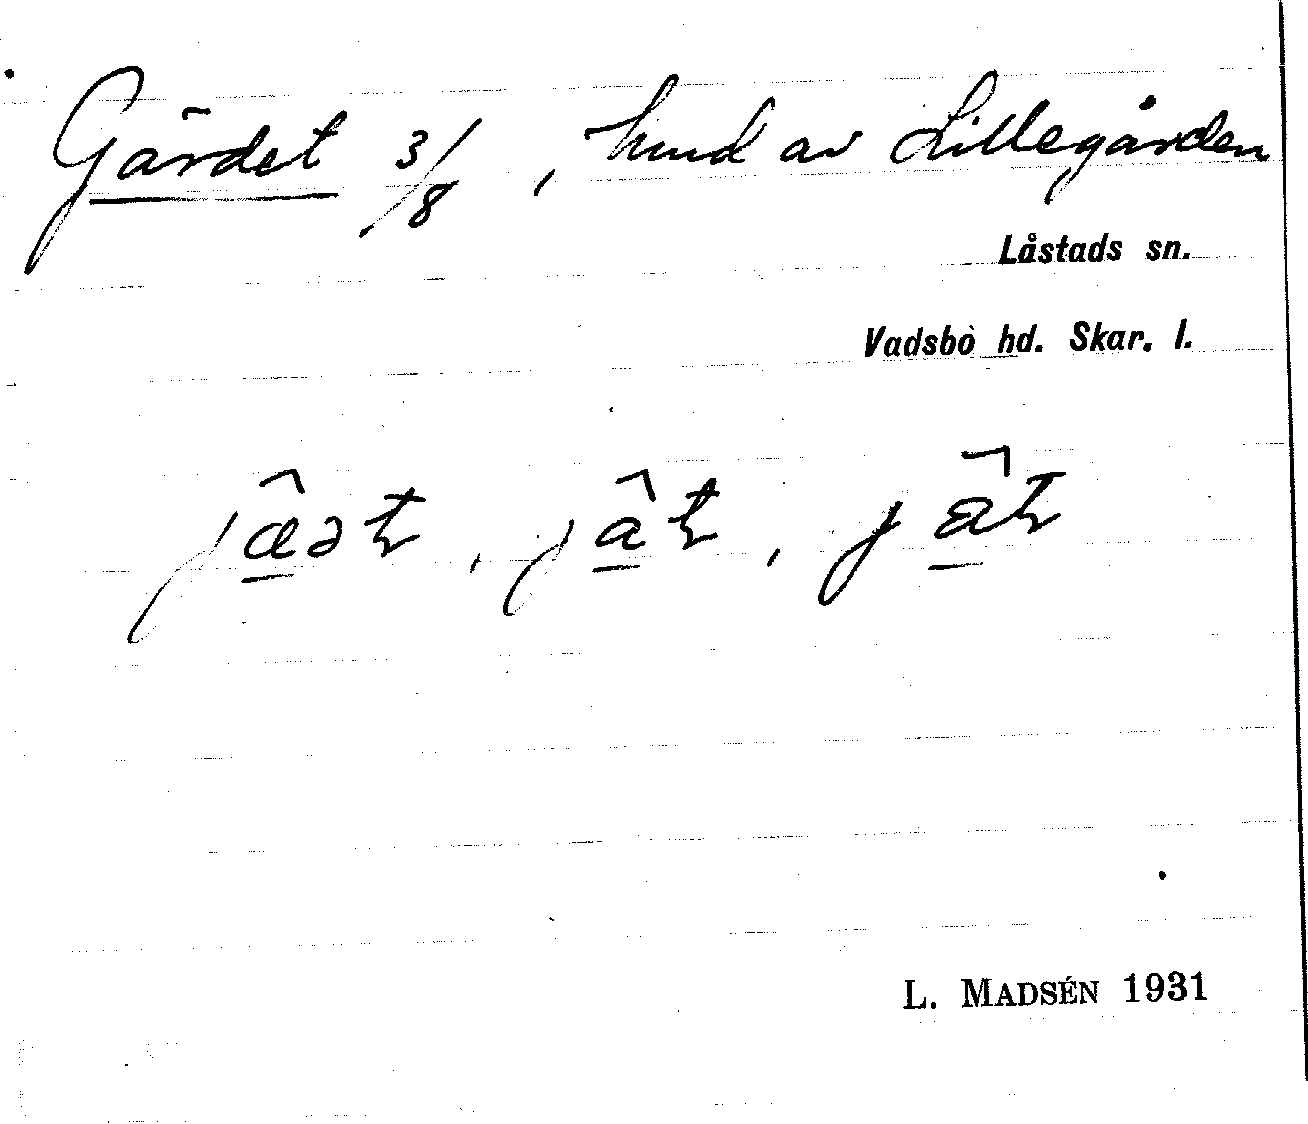 Gärdet 3/8, hmd av Lillegården
Låstads sn.
Vadsbo hd. Skar. l.
L. MADSÉN 1931